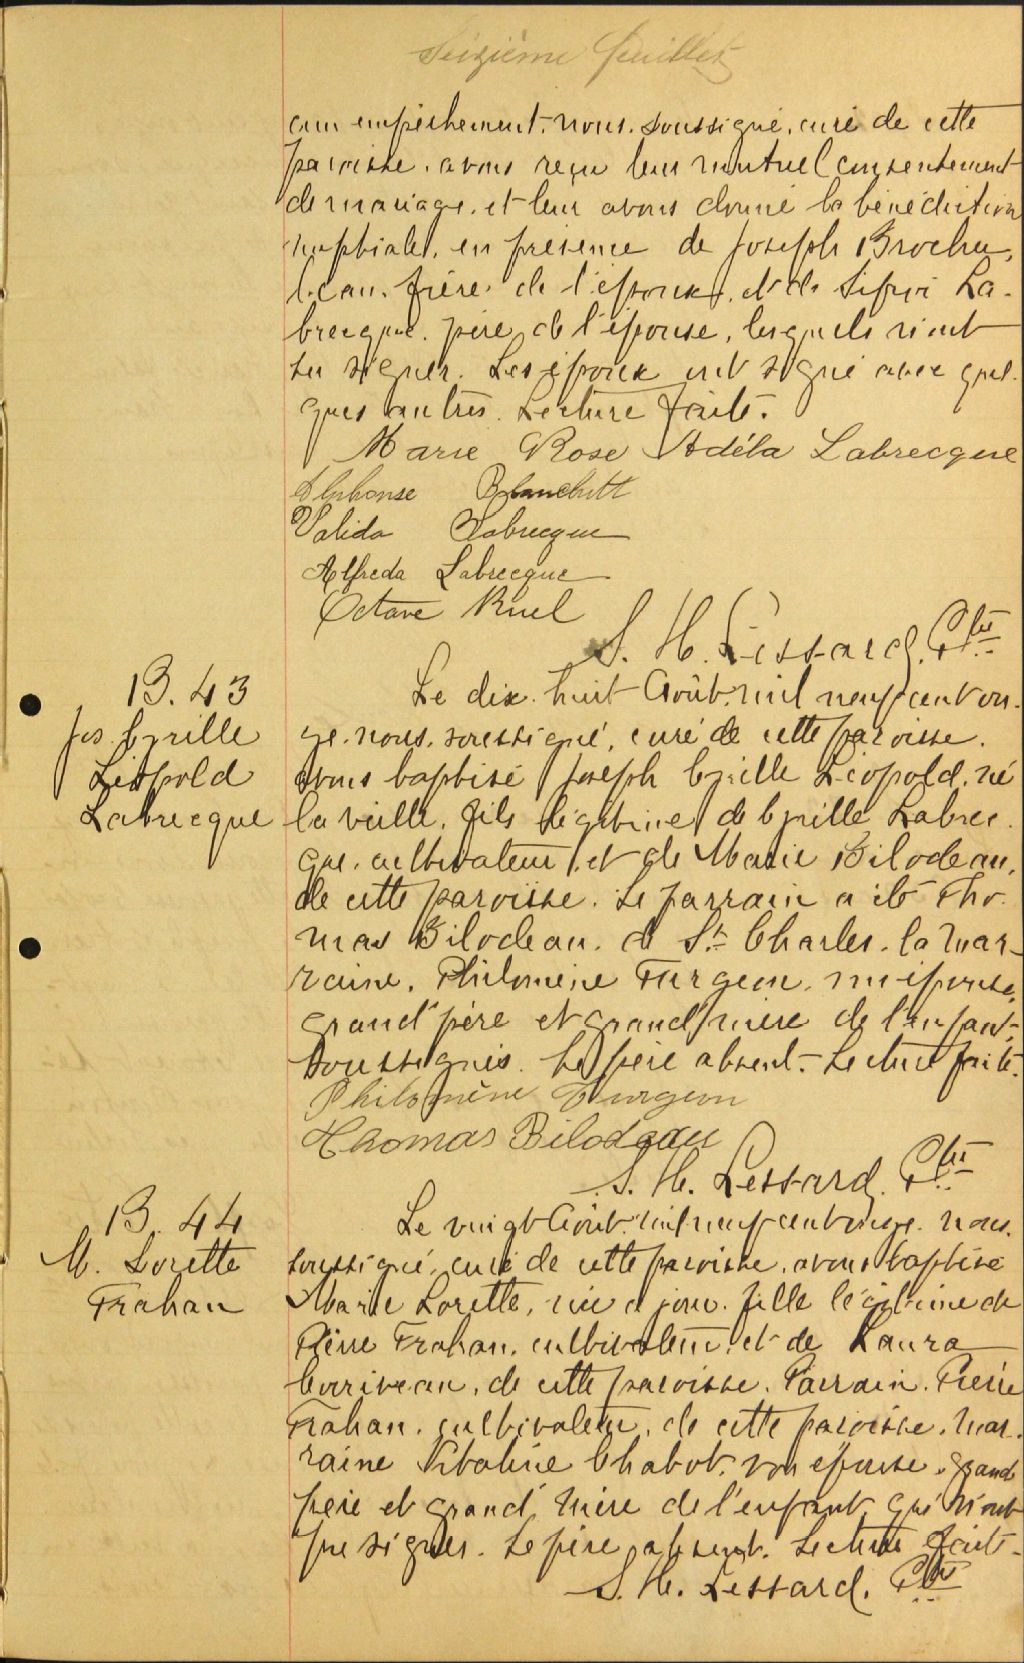 Seizième feuillet
cun empêchement, nous, soussigné, curé de cette
paroisse, avons reçu leur mutuel consentement
de mariage, et leur avons donné la bénédiction
nuptiale, en présence de Joseph Brochu,
beau-frère de l'époux, et de La-
brecque, père de l'épouse, lesquels n'ont
su signer. Les époux ont signé avec quel-
ques autres. Lecture faite.
Marie Rose Adéla Labrecque
Alphonse Blanchett
Valida Labrecque
Alfreda Labrecque
Octave Ruel
S. H. Lessard, Ptre
B. 43
Jos. Cyrille
Léopold
Labrecque
Le dix-huit Août mil neuf cent on-
ze, nous, soussigné, curé de cette paroisse,
avons baptisé Joseph Cyrille Léopold, né
la veille, fils légitime de Cyrille Labrec-
que, cultivateur, et de Marie Bilodeau,
de cette paroisse. Le parrain a été Tho-
mas Bilodeau, de St Charles, la mar-
raine, Philomène Turgeon, son épouse,
grand'père et grand'mère de l'enfant,
soussignés. Le père absent. Lecture faite.
Philomène Turgeon
Thomas Bilodeau
S. H. Lessard, Ptre
B. 44
M. Lorette
Trahan
Le vingt Août mil neuf cent onze, nous,
soussigné, curé de cette paroisse, avons baptisé
Marie Lorette, née ce jour, fille légitime de
Pierre Trahan, cultivateur, et de Laura
Corriveau, de cette paroisse. Parrain, Pierre
Trahan, cultivateur, de cette paroisse, mar-
raine Vitaline Chabot, son épouse, grand
père et grand'mère de l'enfant, qui n'ont
pu signer. Le père absent. Lecture faite.
S. H. Lessard, Ptre